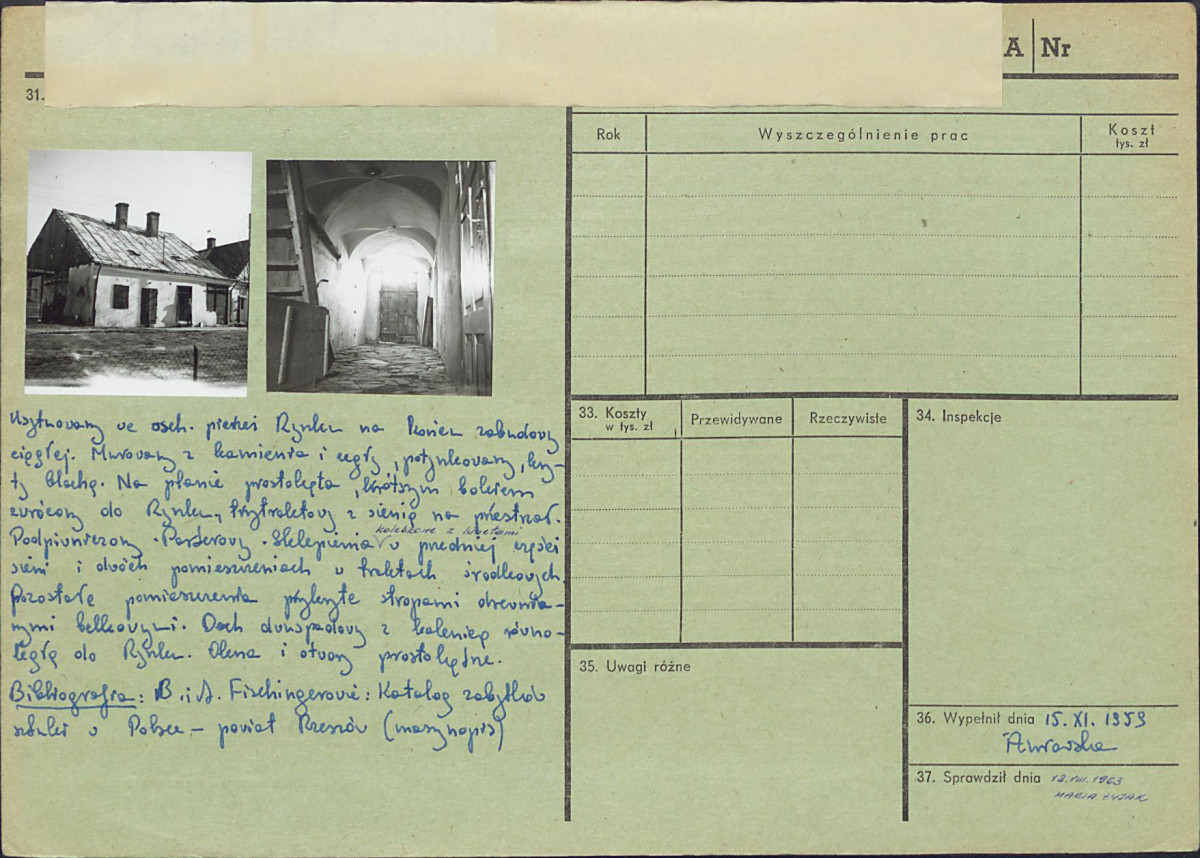 A Nr
31.
Rok Wyszczególnienie prac Koszt
tys. zł
Usytuowany we wsch. pierzei Rynku na końcu zabudowy
ciągłej. Murowany z kamienia i cegły, potynkowany, kry-
ty blachą. Na planie prostokąta, krótszym bokiem
zwrócony do Rynku, trzytraktowy z sienią na przestrzał.
kolebkowe z lunetami
Podpiwniczony. Parterowy. Sklepienia w przedniej części
sieni i dwóch pomieszczeniach w traktach środkowych.
Pozostałe pomieszczenia przykryte stropami drewnia-
nymi belkowymi. Dach dwuspadowy z kalenicą równo-
ległą do Rynku. Okna i otwory prostokątne.
Bibliografia: B. i A. Fischingerowie: Katalog zabytków
sztuki w Polsce – powiat Rzeszów (maszynopis)
33. Koszty
w tys. zł
Przewidywane Rzeczywiste
34. Inspekcje
35. Uwagi różne
36. Wypełnił dnia 15. XI. 1959
37. Sprawdził dnia 12.VIII.1963
MARIA ŻYJAK